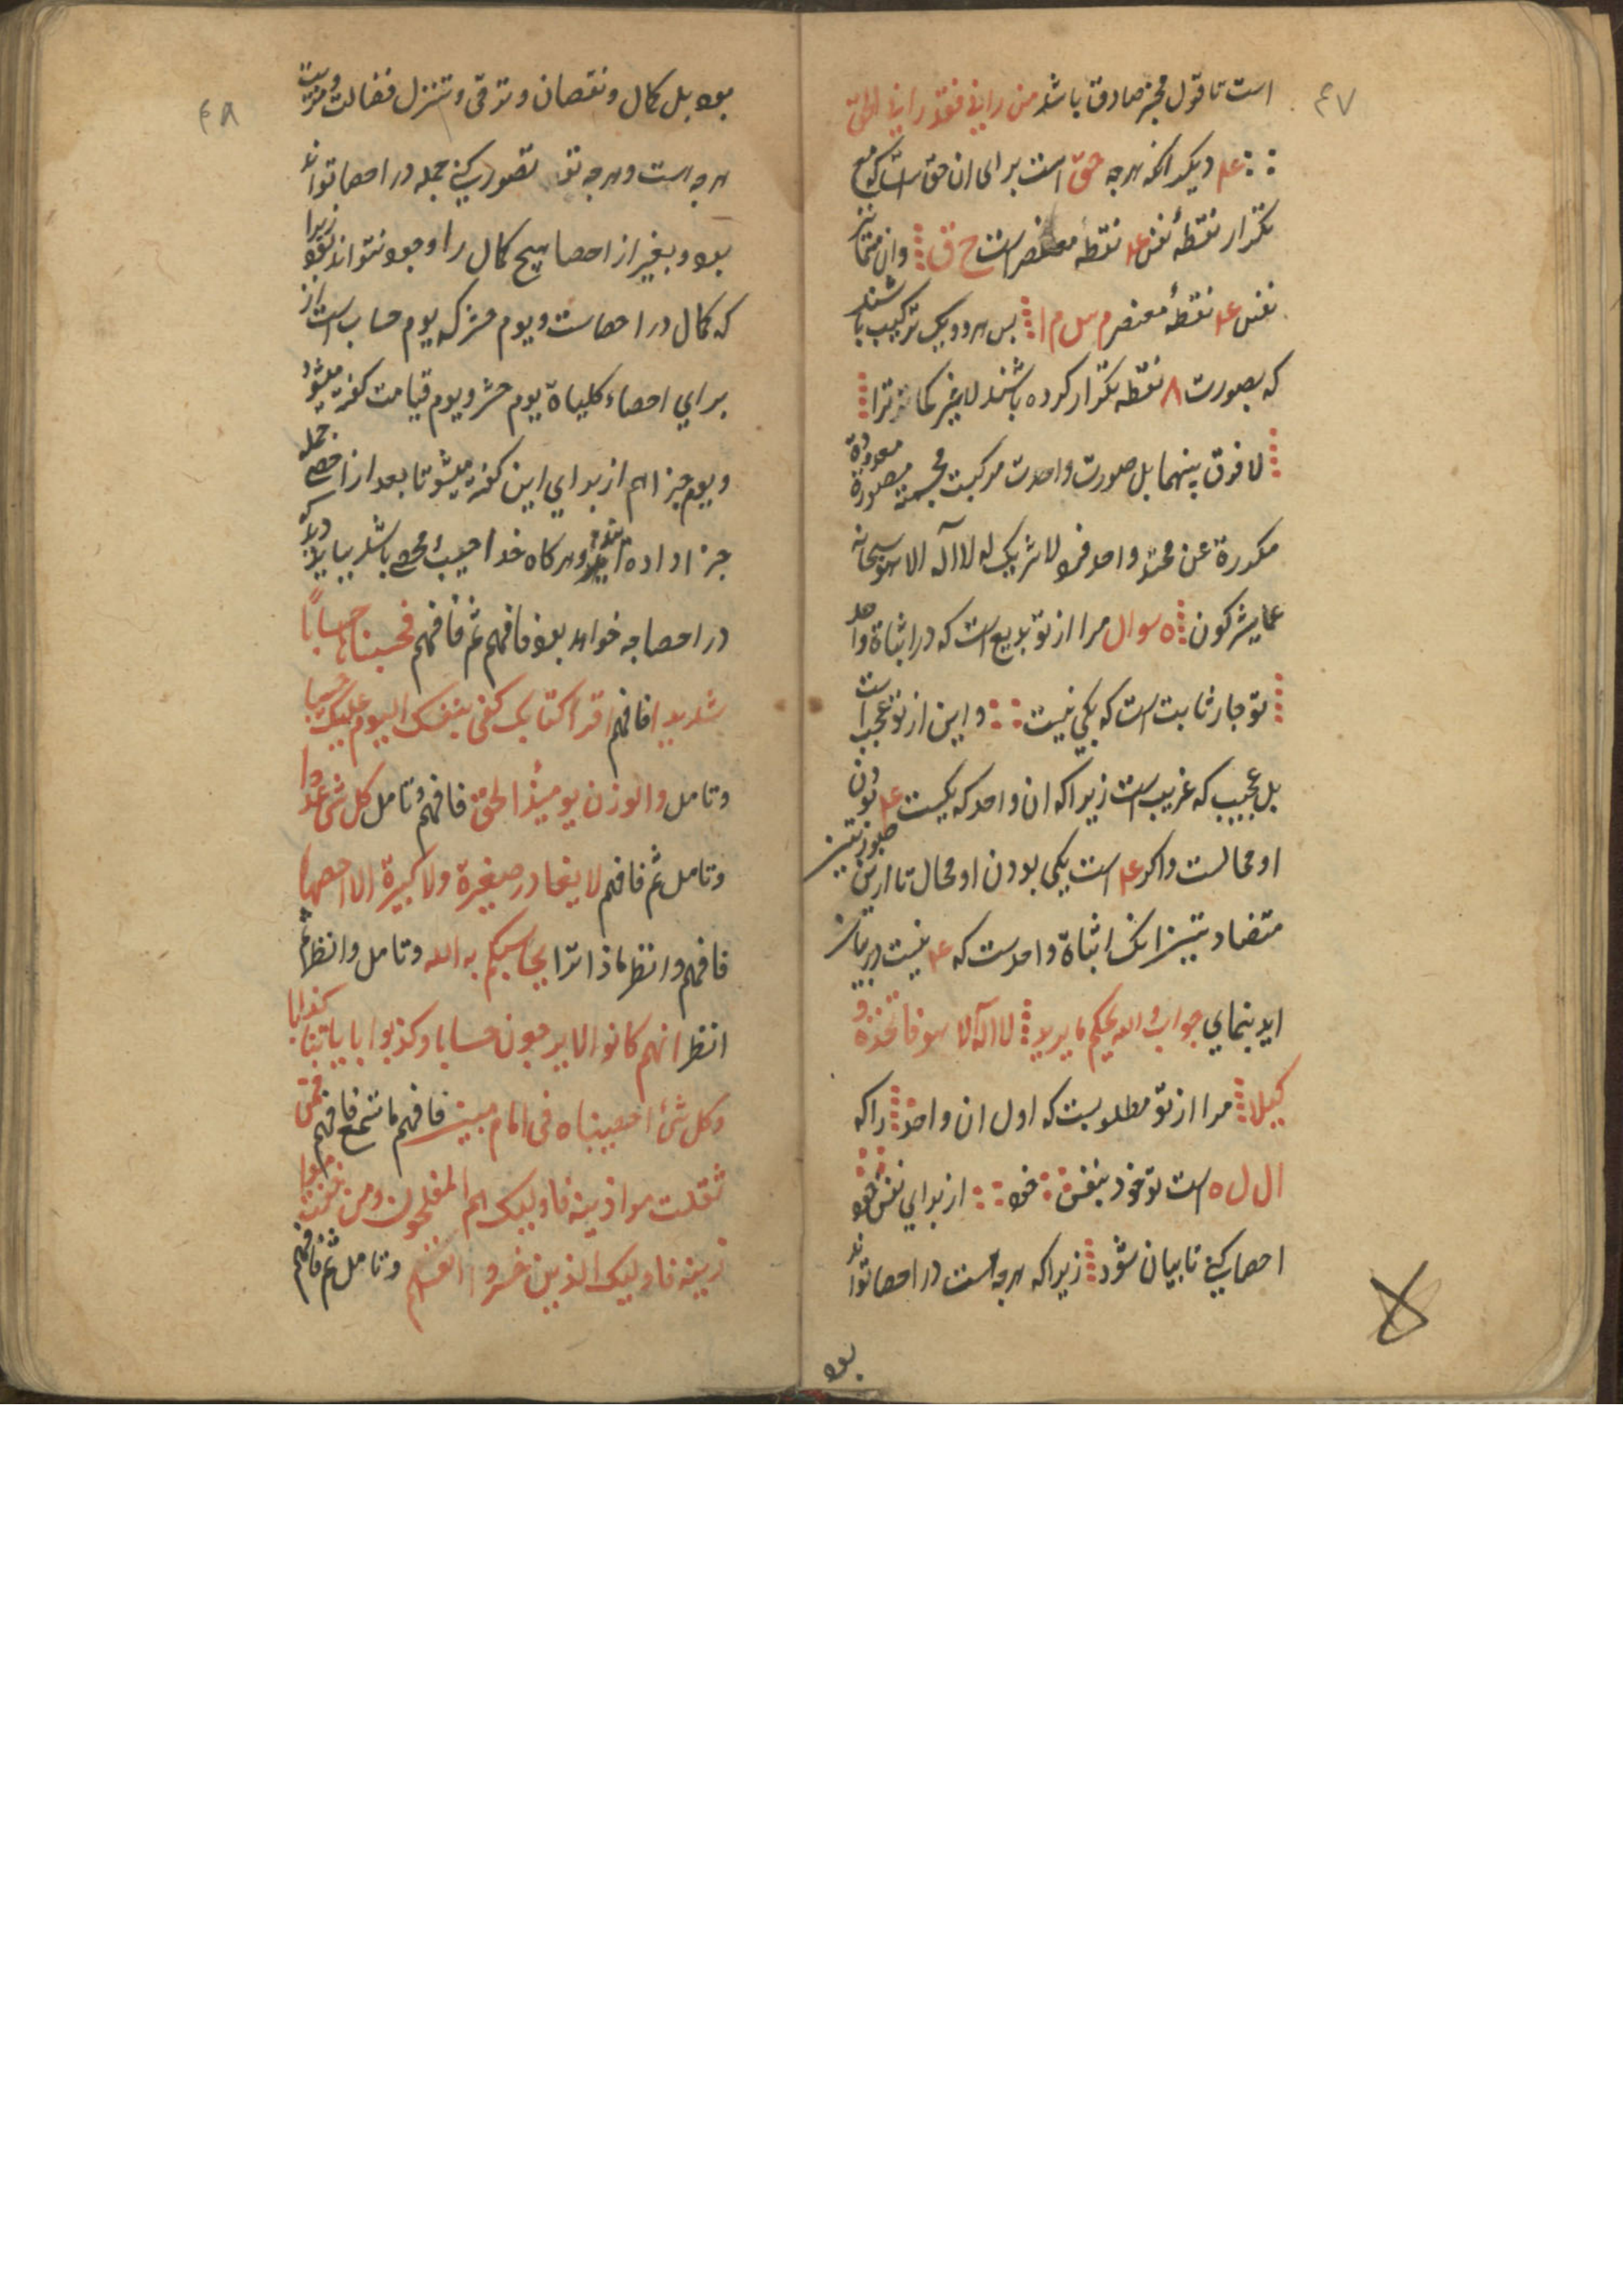 ٤٧
است تا قول مخبر صادق باشد من راني فقد راني الحق
ع۴ ديكر انكه هرجه حق است براى ان حق است كه مع
تكرار نقطهٔ نفس ع۴ نقطه معنصر است ح ق وان متمايز
نفس ع۴ نقطهٔ معنصر م س ل م ا بس هر دو يك تركيب باشند
كه بصورت ۸ نقطه تكرار كرده باشند لا غير كما ترا
لا فرق بينهما بل صورت واحدت مركبت مجسمة معدودة مصورة
مكررة عن محمد واحد فرد لا شريك له لا اله الا هو سبحانه
عما يشركون ٥ سوال مرا از تو بديع است كه در اثباة واحد
تو جار ثابت است كه يكي نيست و اين از تو عجب است
بل عجيب كه غريب است زيرا كه ان واحد كه يكيست ع۴ بودن
او محالست واكر ع۴ است يكى بودن او محال تا ازين
متضاد بتيزانك اثباة واحدست كه ع۴ نيست
ايد بنماي جواب والله يحكم ما يريد لا اله الا هو فاتخذه و
كيلا مرا از تو مطلوبست كه اول ان واحد را كه
ال ل ه است تو خود بنفس خود از براي نفس خود
احصا كني تا بيان شود زيرا كه هرجه است در احصا تواند
بود
٤٨
بود بل كمال و نقصان و ترقى و تنزل فضالت
هرجه است و هرجه تو تصور كني جمله در احصا تواند
بود و بغير از احصا هيج كمال را وجود نتواند بود زيرا
كه كمال در احصاست و يوم حشر كه يوم حساب است از
براي احصاء كلياة يوم حشر و يوم قيامت كفته ميشود
و يوم جزا هم از براي اين كفته ميشود تا بعد از احصى جمله
جزا داده ايد و هركاه خدا حسيب و محصى باشد
در احصا جه خواهد بود فافهم ثم فافهم فحسبناها حسابًا
شديدا فافهم اقرا كتابك كفى بنفسك اليوم عليك حسيبا
وتامل والوزن يوميذ الحق فافهم وتامل كل شى عددا
وتامل ثم فافهم لا يغادر صغيرة ولا كبيرة الا احصيها
فافهم وانظر ماذا ترا يحاسبكم به الله وتامل وانظر ثم
انظر انهم كانوا لا يرجون حسابا وكذبوا باياتنا كذابا
وكل شئ احصيناه فى امام مبين فافهم ما تسمع فافهم فمن
ثقلت موازينه فاوليك هم المفلحون ومن خفت موا
زينه فاوليك الذين خسروا انفسهم وتامل ثم فافهم